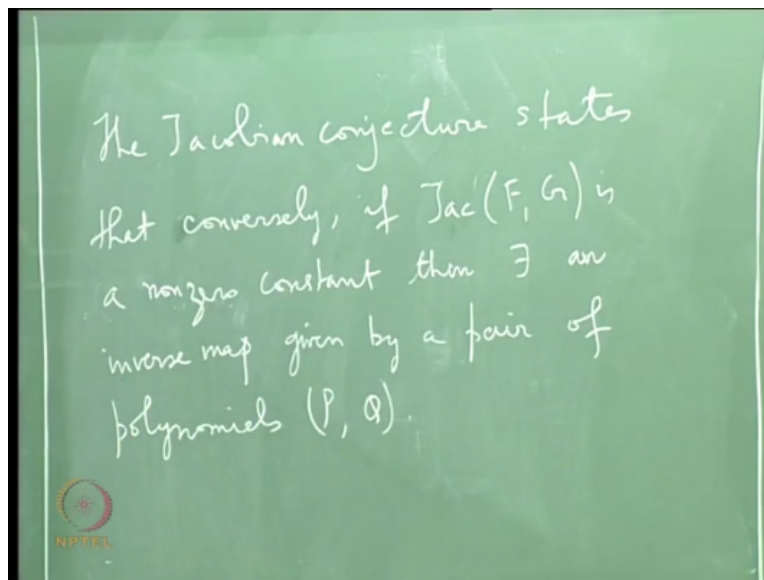 The Jacobian conjecture states
that conversely, if Jac(F, G) is
a nonzero constant then ∃ an
inverse map given by a pair of
polynomials (P, Q).
NPTEL